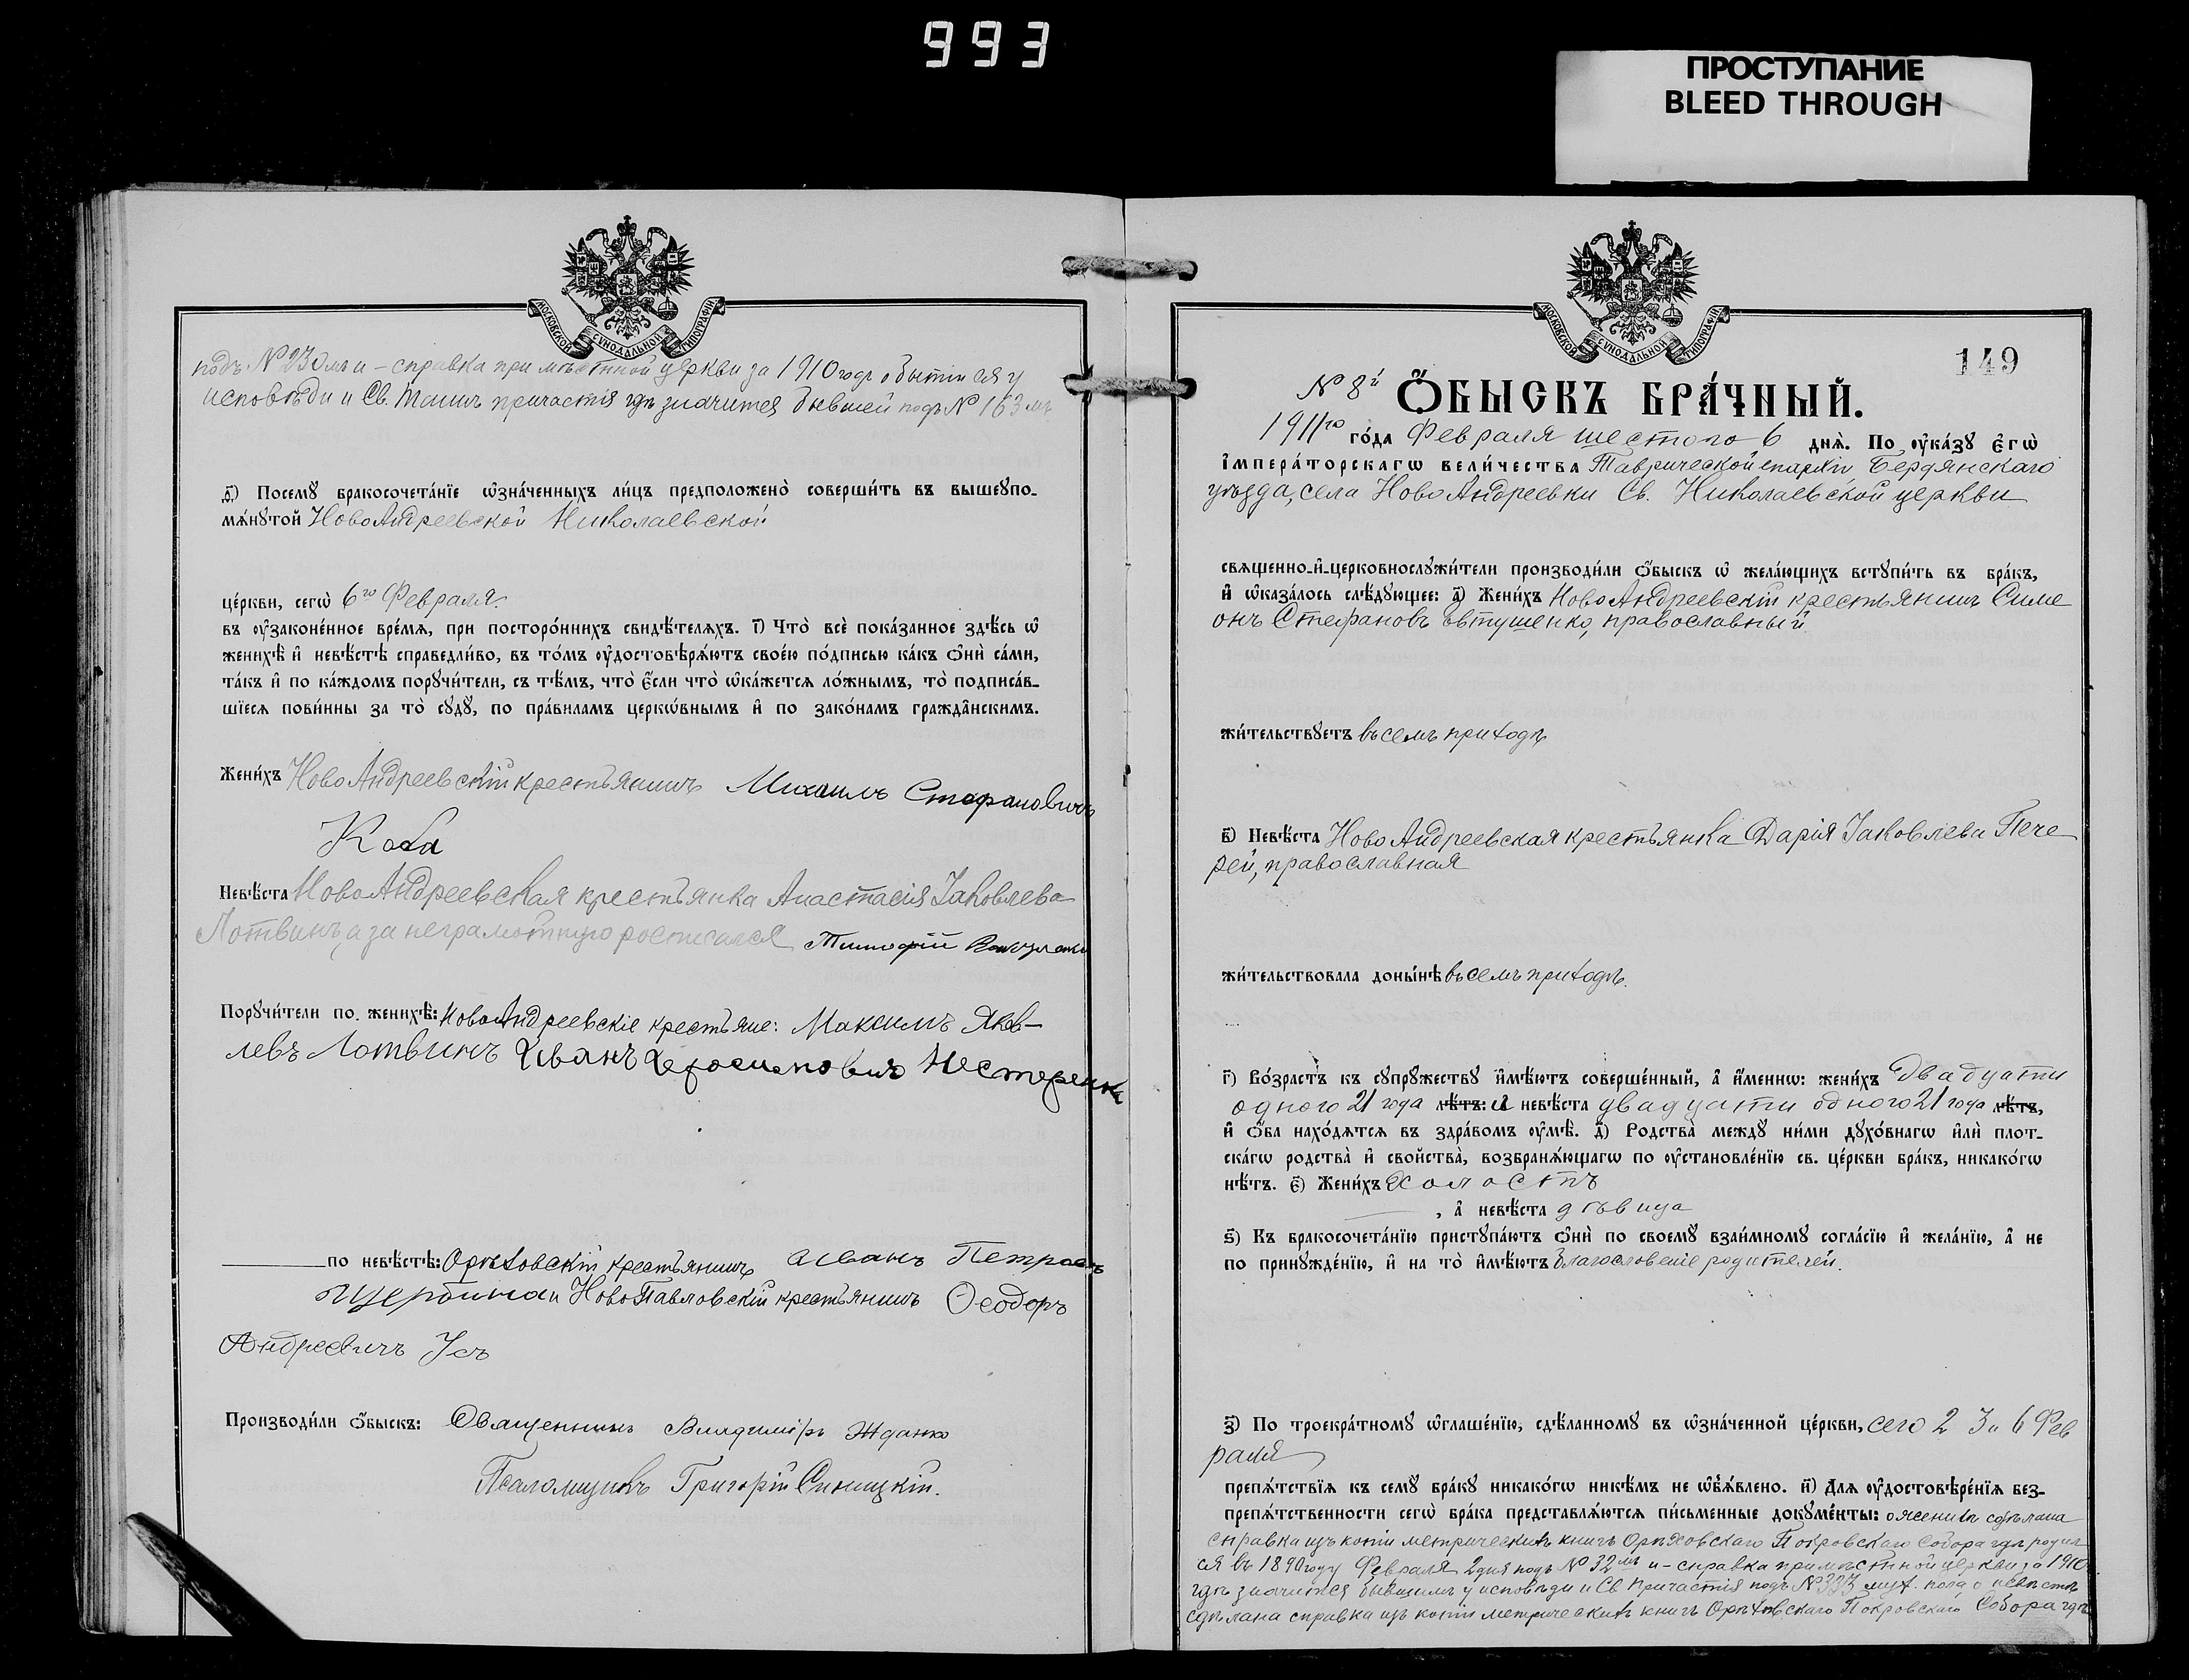 993
ПРОСТУПАНИЕ
BLEED THROUGH
МОСКОВСКОЙ СѴНОДАЛЬНОЙ ТИПОГРАФІИ
подъ № 230мъ и – справка при мѣстной церкви за 1910 годъ о бытіи ея у
исповѣди и Св. Таинъ причастія гдѣ значится бывшей подъ № 163 мъ
д҃) Посемꙋ бракосочета́нїе ѡ҆зна́ченныхъ ли́цъ предположено̀ соверши́ть въ вышеꙋпо-
мѧ́нꙋтой НовоАндреевской Николаевской
це́ркви, сегѡ̀ 6го Февраля.
въ ᲂу҆законе́нное вре́мѧ, при посторо́ннихъ свидѣ́телѧхъ. і҃) Что̀ всѐ пока́занное здѣ́сь ѡ҆
женихѣ̀ и҆ невѣ́стѣ справедли́во, въ то́мъ ᲂу҆достовѣрѧ́ютъ свое́ю по́дписью ка́къ ѻ҆нѝ са́ми,
та́къ и҆ по ка́ждомъ порꙋчи́тели, съ тѣ́мъ, что̀ є҆́сли что̀ ѡ҆ка́жетсѧ ло́жнымъ, то̀ подписа́в-
шїесѧ пови́нны за то̀ сꙋдꙋ̀, по пра́виламъ церкѡ́внымъ и҆ по зако́намъ гражда̑нскимъ.
Жени́хъ НовоАндреевскій крестьянинъ Михаилъ Стефановичъ
Коба
Невѣ́ста НовоАндреевская крестьянка Анастасія Іаковлева
Лотвинъ, а за неграмотную росписался Тимофій
Порꙋчи́тели по женихѣ̀: НовоАндреевскіе крестьяне: Максимъ Яков-
левъ Лотвинъ Иванъ Нестеренк
по невѣ́стѣ: Орѣховскій крестьянинъ Иванъ Петровъ
Щербина и НовоПавловскій крестьянинъ Ѳеодоръ
Андреевичъ Усъ
Производи́ли ѻ҆́быскъ: Священникъ Владиміръ Жданко
Псаломщикъ Григорій Синицкій.
149
№ 8й ѺБЫСКЪ БРА́ЧНЫЙ.
1911го го́да Февраля шестого 6 днѧ̀. По ᲂу҆ка́зꙋ є҆гѡ̀
І҆мпера́торскагѡ вели́чества Таврической епархіи Бердянскаго
уѣзда, села НовоАндреевки Св. Николаевской церкви
свѧщенно-и҆-церковнослꙋжи́тели производи́ли ѻ҆́быскъ ѡ҆ жела́ющихъ встꙋпи́ть въ бра́къ,
и҆ ѡ҆каза́лось слѣ́дꙋющее: а҃) Жени́хъ НовоАндреевскій крестьянинъ Симе
онъ Стефановъ Евтушенко, православный.
жи́тельствꙋетъ въ семъ приходѣ
в҃) Невѣ́ста НовоАндреевская крестьянка Дарія Іаковлева Пече
рей, православная
жи́тельствовала доны́нѣ въ семъ приходѣ.
г҃) Во́зрастъ къ сꙋпрꙋ́жествꙋ и҆мѣ́ютъ соверше́нный, а҆ и҆́меннѡ: жени́хъ двадцати
одного 21 года лѣ́тъ: и невѣ́ста двадцати одного 21 года лѣ́тъ,
и҆ ѻ҆́ба нахо́дѧтсѧ въ здра́вомъ ᲂу҆мѣ̀. д҃) Родства̀ междꙋ̀ ни́ми дꙋхо́внагѡ и҆лѝ плот-
ска́гѡ родства̀ и҆ сво́йства̀, возбранѧ́ющагѡ по ᲂу҆становле́нїю св. це́ркви бра́къ, никако́гѡ
нѣ́тъ. є҃) Жени́хъ холостъ
, а҆ невѣ́ста дѣвица
ѕ҃) Къ бракосочета́нїю пристꙋпа́ютъ ѻ҆нѝ по своемꙋ̀ взаи́мномꙋ согла́сїю и҆ жела́нїю, а҆ не
по принꙋжде́нїю, и҆ на то̀ и҆мѣ́ютъ благословеніе родителей.
з҃) По троекра́тномꙋ ѡ҆глаше́нїю, сдѣ́ланномꙋ въ ѡ҆зна́ченной це́ркви, сего 2 3 и 6 Фев
раля
препѧ́тствїѧ къ семꙋ̀ бра́кꙋ никако́гѡ никѣ́мъ не ѡ҆бъѧ́влено. и҃) Длѧ ᲂу҆достовѣре́нїѧ без-
препѧ́тственности сегѡ̀ бра́ка представлѧ́ютсѧ пи́сьменные докꙋме́нты: о женихѣ сдѣлана
справка изъ копіи метрическихъ книгъ Орѣховскаго Покровскаго Собора гдѣ родил
ся въ 1890 году Февраля 2 дня подъ № 32мъ и – справка при мѣстной церкви за 1910
гдѣ значится бывшимъ у исповѣди и Св. Причастія подъ № 333 муж. пола о невѣстѣ
сдѣлана справка изъ копіи метрическихъ книгъ Орѣховскаго Покровскаго Собора гдѣ